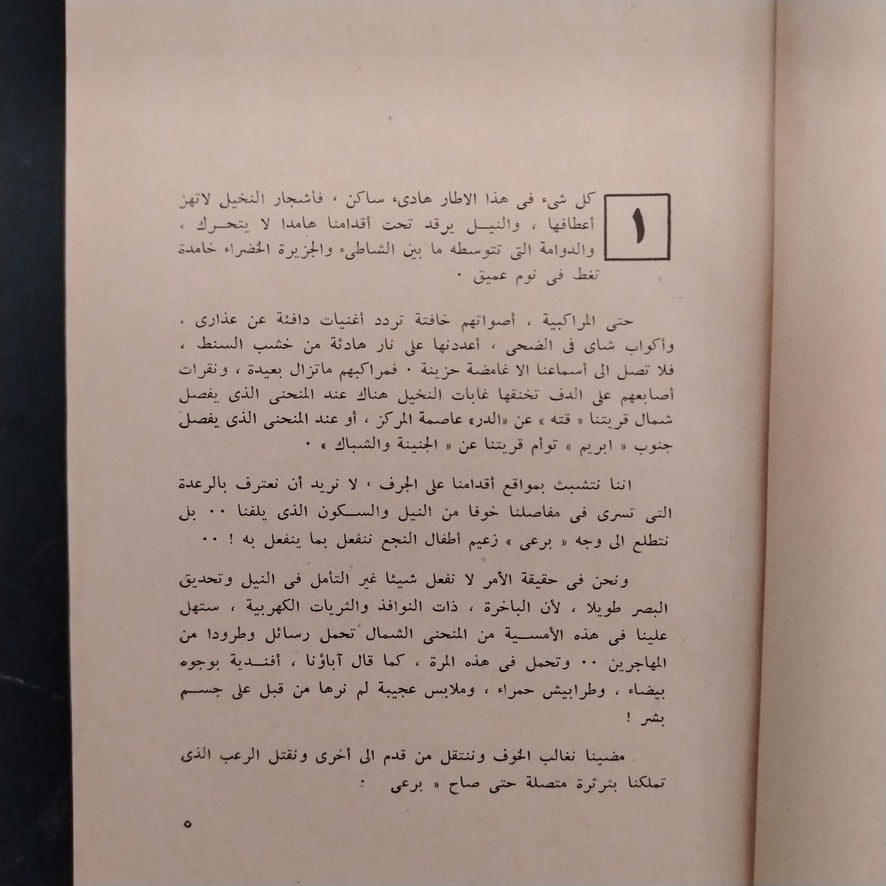 ١
كل شىء فى هذا الاطار هادىء ساكن ، فأشجار النخيل لاتهز
أعطافها ، والنيــل يرقد تحت أقدامنا هامدا لا يتحــرك ،
والدوامة التى تتوسطه ما بين الشاطىء والجزيرة الخضراء خامدة
تغط فى نوم عميق ٠
حتى المراكبية ، أصواتهم خافتة تردد أغنيات دافئة عن عذارى ،
وأكواب شاى فى الضحى ، أعددنها على نار هادئة من خشب السنط ،
فلا تصل الى أسماعنا الا غامضة حزينة ٠ فمراكبهم ماتزال بعيدة ، ونقرات
أصابعهم على الدف تخنقها غابات النخيل هناك عند المنحنى الذى يفصل
شمال قريتنا « قته » عن «الدر» عاصمة المركز ، أو عند المنحنى الذى يفصل
جنوب « ابريم » توأم قريتنا عن « الجنينة والشباك » ٠
اننا نتشبث بمواقع أقدامنا على الجرف ، لا نريد أن نعترف بالرعدة
التى تسرى فى مفاصلنا خوفا من النيل والســكون الذى يلفنا ٠٠ بل
نتطلع الى وجه « برعى » زعيم أطفال النجع ننفعل بما ينفعل به ! ٠٠
ونحن فى حقيقة الأمر لا نفعل شيئا غير التأمل فى النيل وتحديق
البصر طويلا ، لأن الباخرة ، ذات النوافذ والثريات الكهربية ، ستهل
علينا فى هذه الأمســية من المنحنى الشمال تحمل رسائل وطرودا من
المهاجرين ٠٠ وتحمل فى هذه المرة ، كما قال آباؤنا ، أفنــدية بوجوه
بيضاء ، وطرابيش حمراء ، وملابس عجيبة لم نرها من قبل على جســم
بشر !
مضينا نغالب الخوف وننتقل من قدم الى أخرى ونقتل الرعب الذى
تملكنا بثرثرة متصلة حتى صاح « برعى :
٥